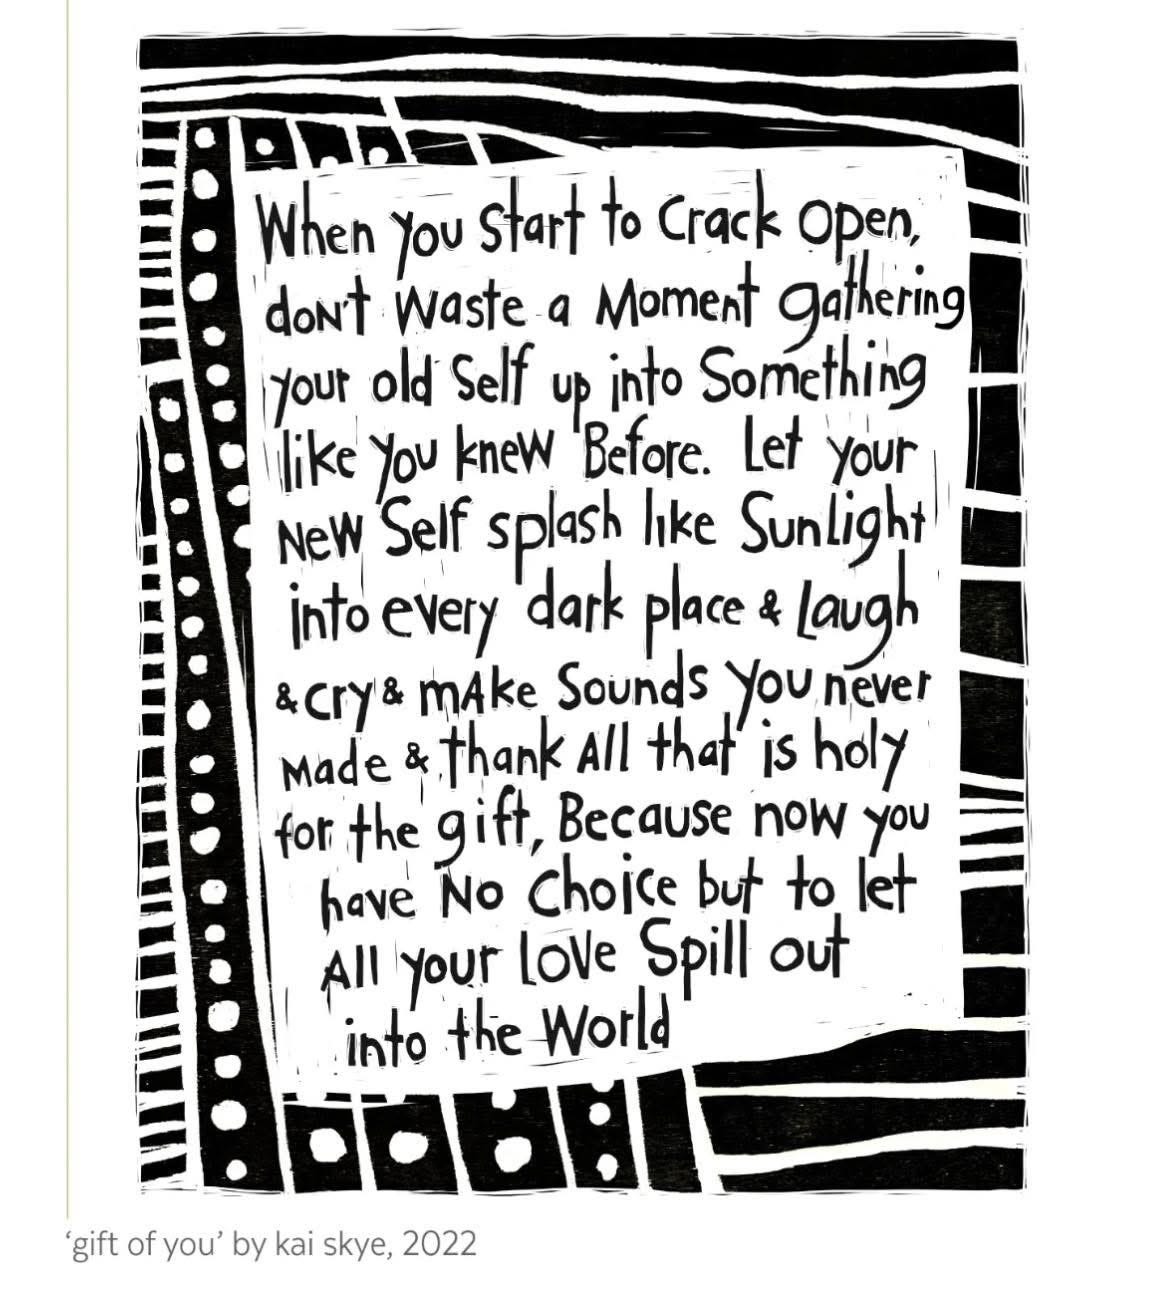 When you Start to Crack open,
don't Waste a Moment gathering
your old Self up into Something
like you knew Before. Let your
New Self splash like Sunlight
into every dark place & Laugh
& cry & mAke Sounds you never
Made & thank All that is holy
for the gift, Because now you
have No Choice but to let
All your Love Spill out
into the World
'gift of you' by kai skye, 2022